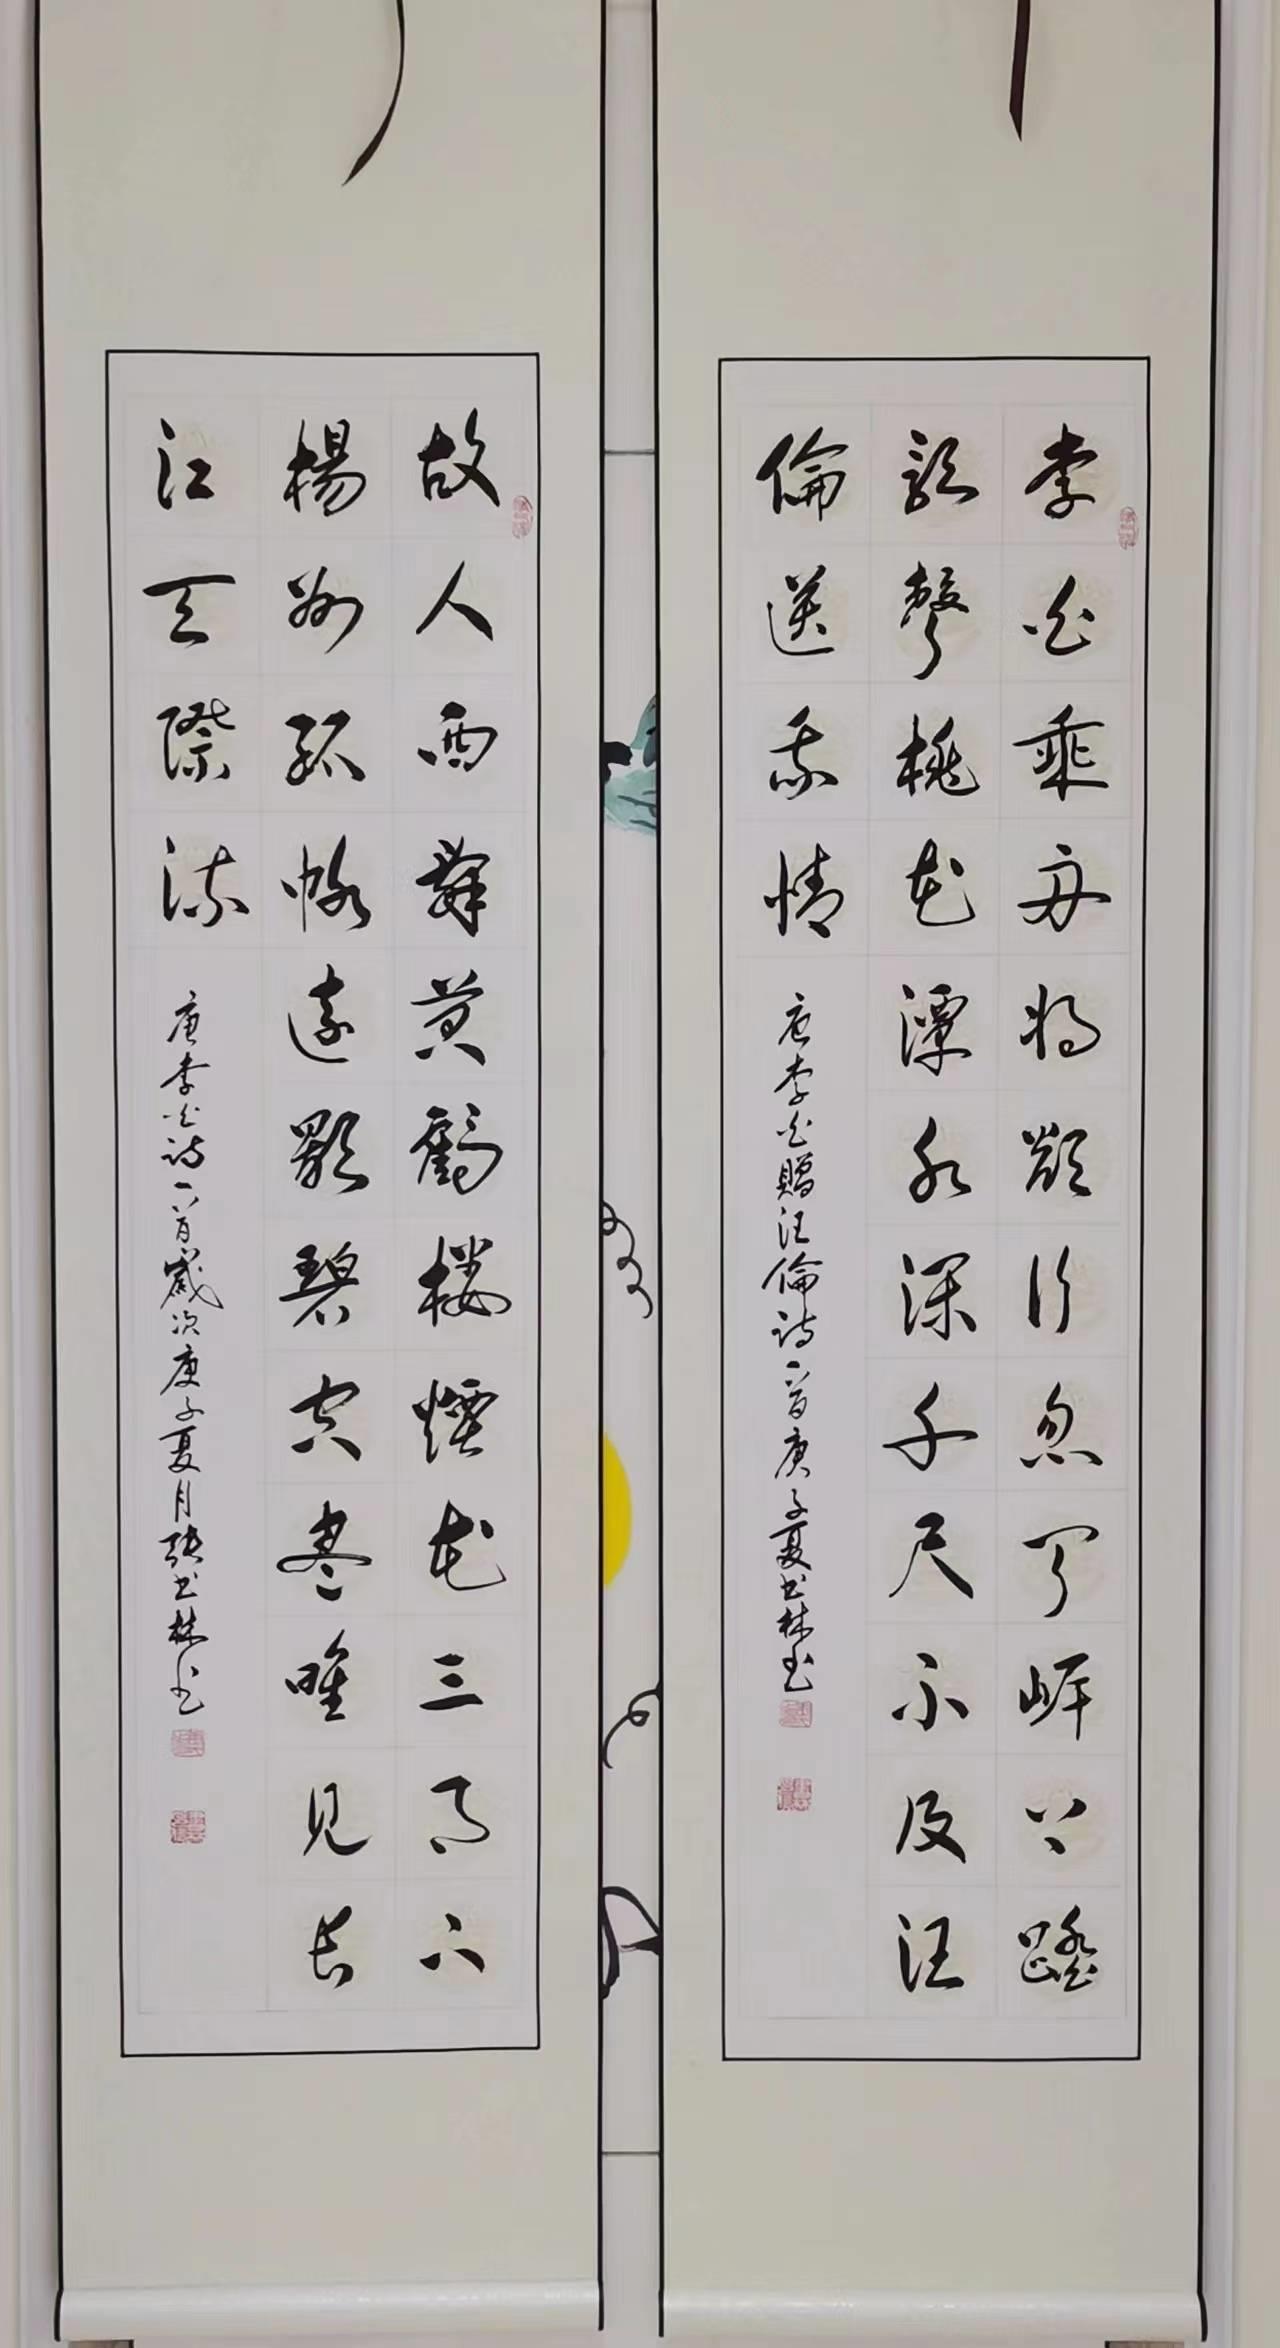 李白乘舟将欲行忽闻岸上踏
歌聲桃花潭水深千尺不及汪
倫送我情
唐李白贈汪倫诗一首庚子夏书林书
故人西辞黄鹤楼煙花三月下
楊州孤帆遠影碧空尽唯見長
江天際流
唐李白诗一首歲次庚子夏月张书林书